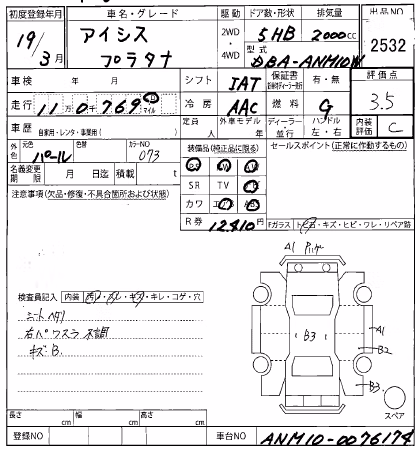 初度登録年月 車名・グレード 駆動 ドア数・形状 排気量 出品NO
19/3月 アイシス プラタナ 2WD・4WD 5HB 2000cc 2532
型式 DBA-ANM10W
車検 年 月 シフト IAT 保証書 有・無 評価点 3.5
走行 11万0千769 マイル 冷房 AAC 燃料 G
車歴 自家用・レンタ・事業用( ) 定員 外車モデル 年 ディーラー・並行 ハンドル 左・右 内装評価 C
外色 元色 パール 色替 カラーNO 073 装備品(純正品に限る) セールスポイント(正常に作動するもの)
名義変更期限 月 日迄 積載 t
SR TV
注意事項(欠品・修復・不具合箇所および状態) カワ
R券 12.810円
Fガラス ト・石・キズ・ヒビ・ワレ・リペア跡
A1
検査員記入 内装 キレ・コゲ・穴
シートヘタリ
右パワスラ不調
キズB.
B3
A1
B2
B3
スペア
長さ cm 幅 cm 高さ cm
登録NO 車台NO ANM10-0076174